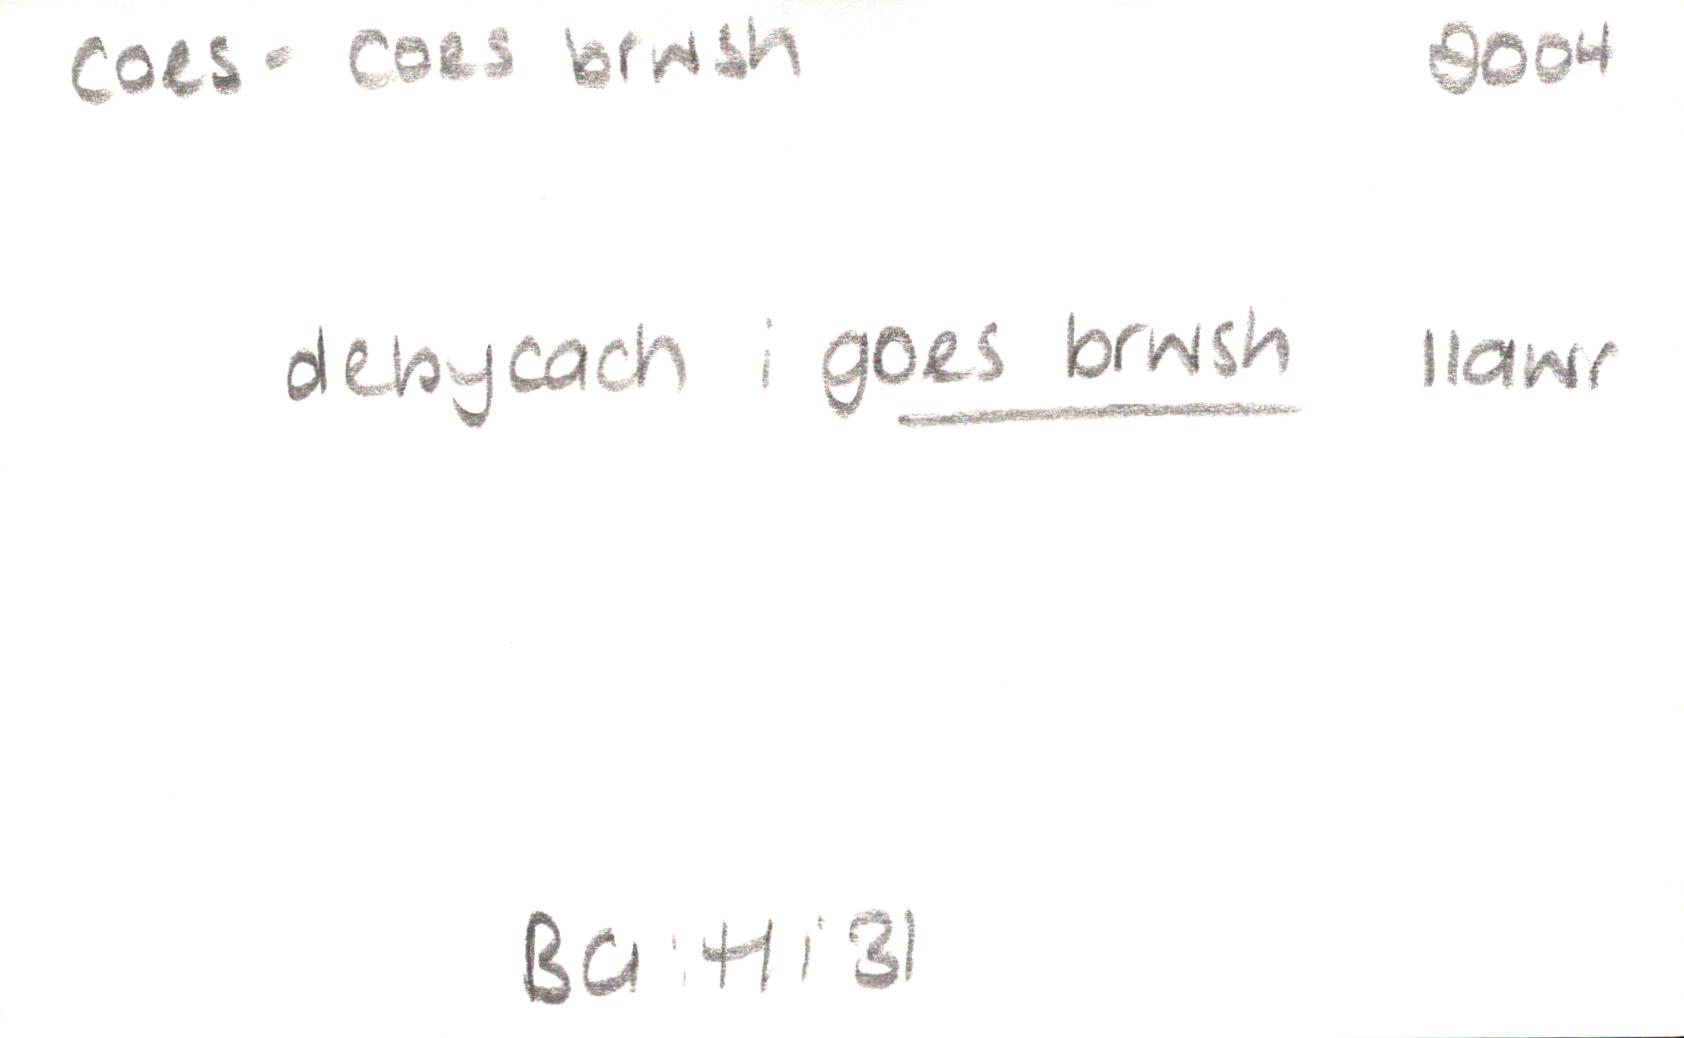 coes - coes brwsh 2004
debycach i goes brwsh llawr